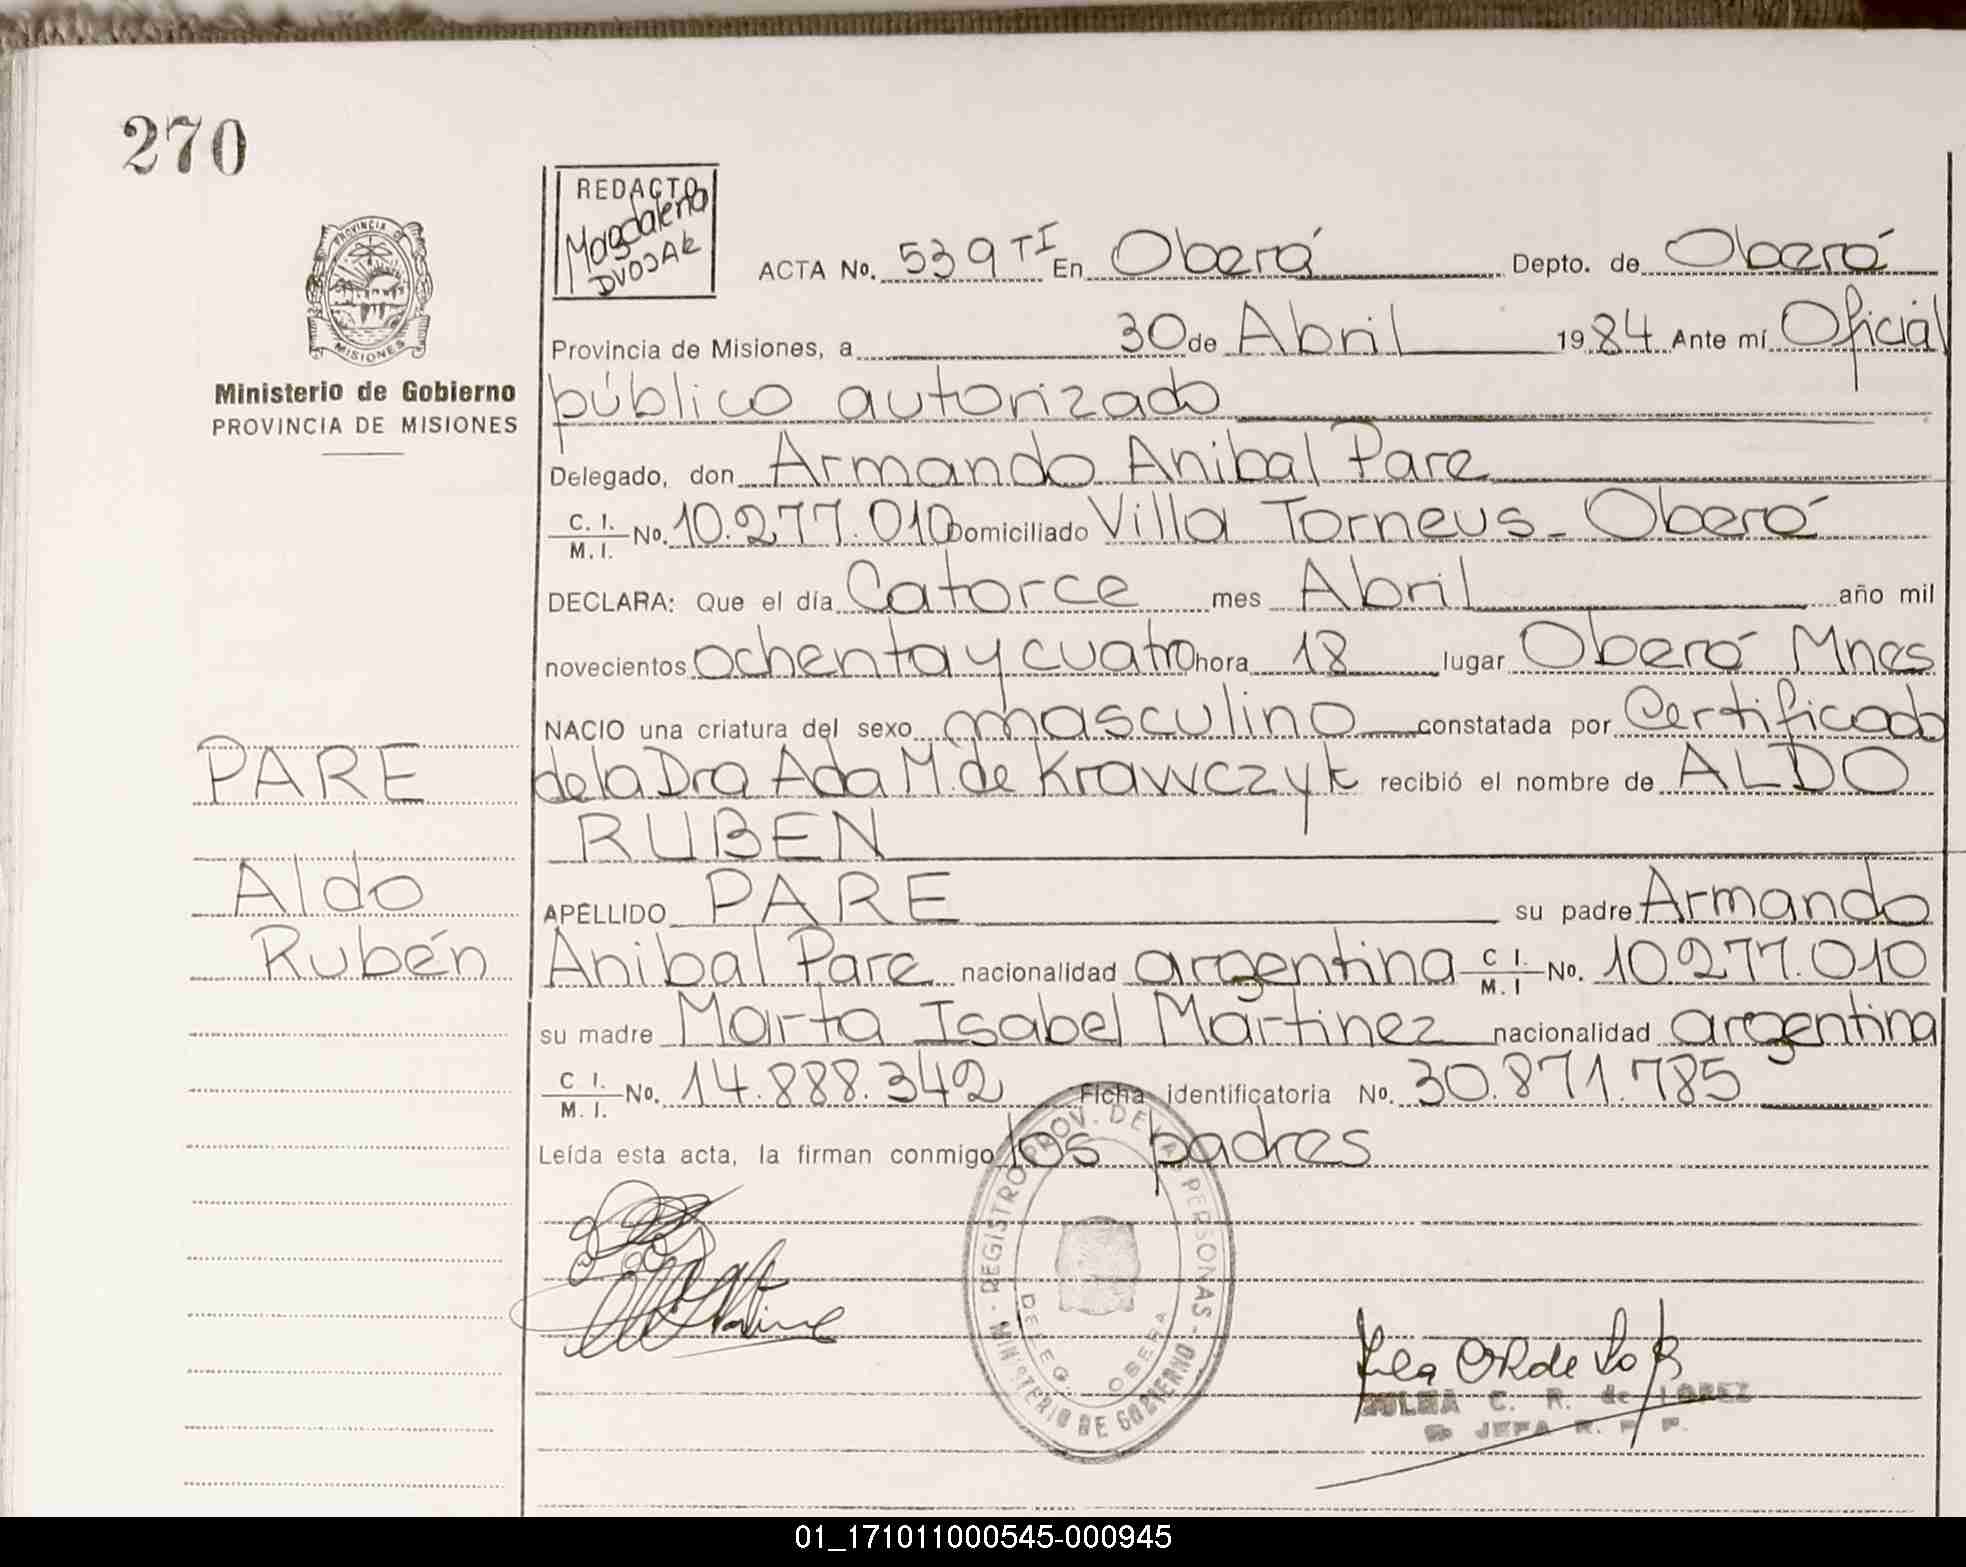 270
PROVINCIA DE
MISIONES
Ministerio de Gobierno
PROVINCIA DE MISIONES
REDACTO
Magdalena
DVOJAK
ACTA No. 539 TI En Oberá Depto. de Oberá
Provincia de Misiones, a 30 de Abril 1984 Ante mí Oficial
público autorizado
Delegado, don Armando Anibal Pare
C. I. / M. I. No. 10.277.010 Domiciliado Villa Torneus - Oberá
DECLARA: Que el día Catorce mes Abril año mil
novecientos ochenta y cuatro hora 18 lugar Oberá Mnes
NACIO una criatura del sexo masculino constatada por Certificado
de la Dra Ada M. de Krawczyk recibió el nombre de ALDO
RUBEN
APELLIDO PARE su padre Armando
Anibal Pare nacionalidad argentina C I. / M. I No. 10.277.010
su madre Marta Isabel Martinez nacionalidad argentina
C I. / M. I. No. 14.888.342 Ficha identificatoria No. 30.871.785
Leída esta acta, la firman conmigo los padres
PARE
Aldo
Rubén
REGISTRO PROV. DE LAS PERSONAS - MINISTERIO DE GOBIERNO
DELEG. OBERA
C. R. de LOPEZ
JEFA R. P. P.
01_171011000545-000945